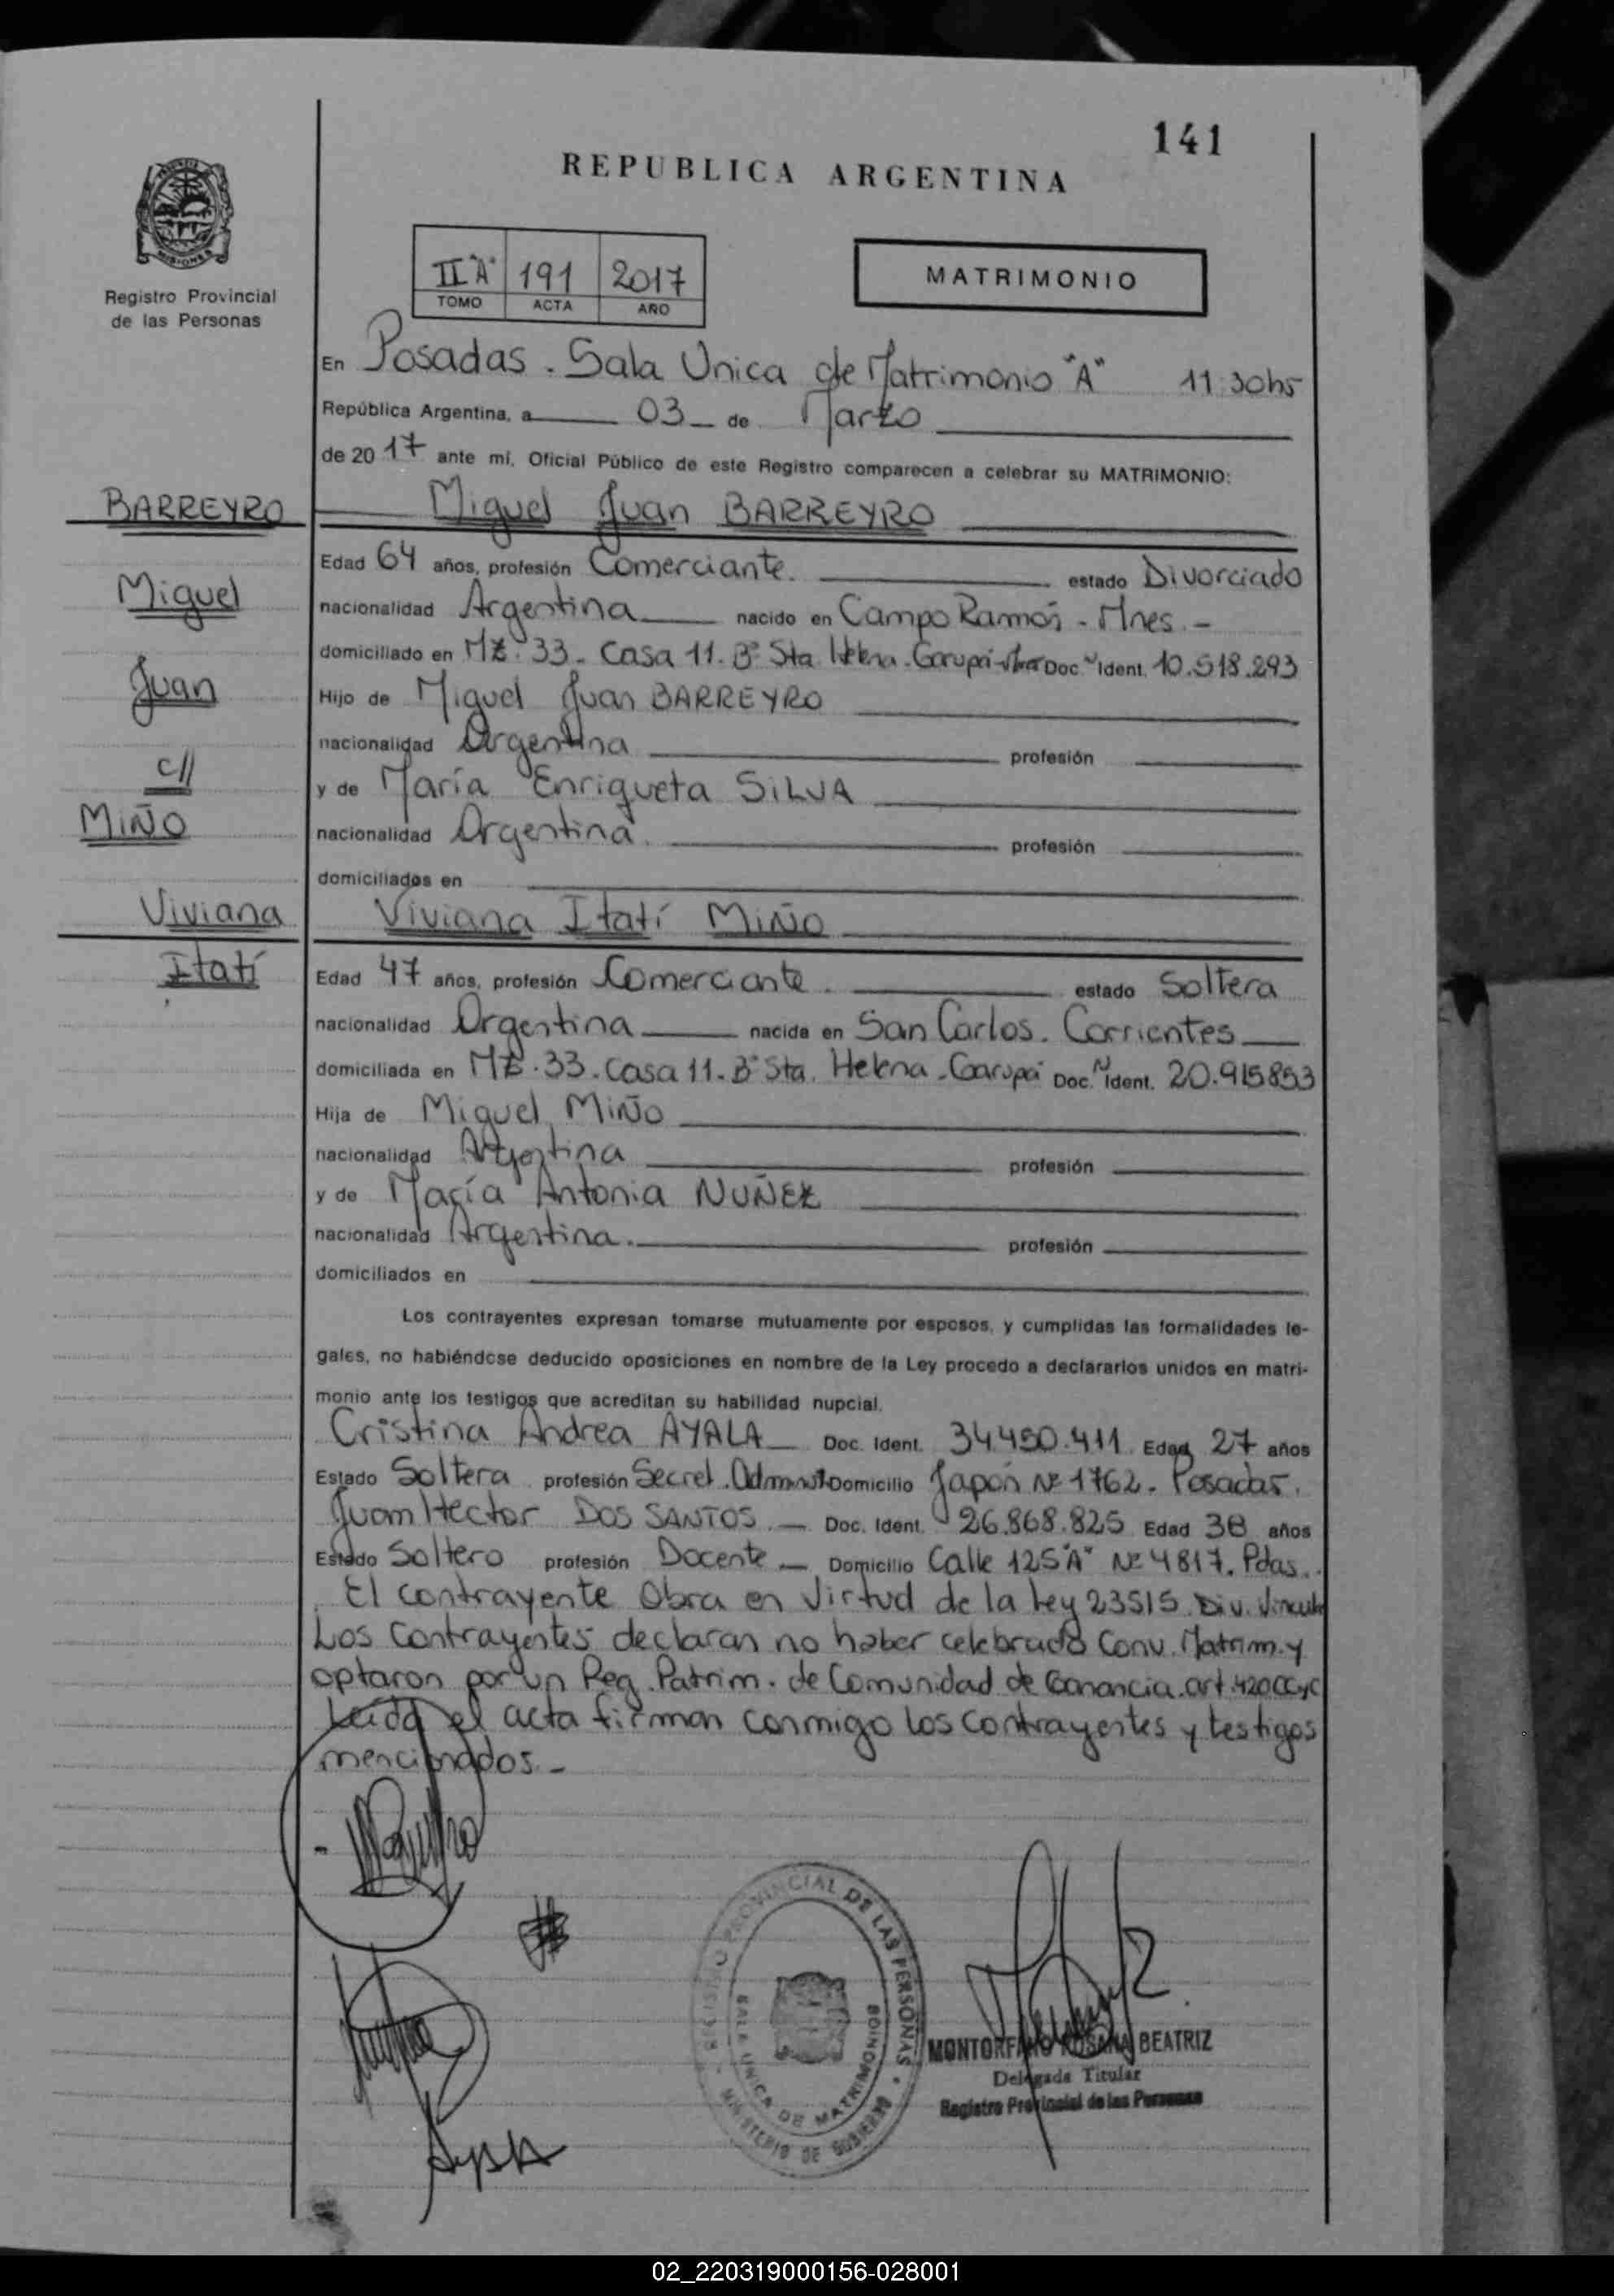 141
REPUBLICA ARGENTINA
MISIONES
Registro Provincial
de las Personas
II "A" 191 2017
TOMO ACTA AÑO
MATRIMONIO
En Posadas. Sala Unica de Matrimonio "A" 11:30hs
República Argentina, a 03 de Marzo
de 2017 ante mí, Oficial Público de este Registro comparecen a celebrar su MATRIMONIO:
BARREYRO
Miguel
Juan
c//
MIÑO
Viviana
Itatí
Miguel Juan BARREYRO
Edad 64 años, profesión Comerciante. estado Divorciado
nacionalidad Argentina nacido en Campo Ramón - Mnes.-
domiciliado en MZ. 33 - Casa 11. B° Sta. Helena. Garupá Doc. Ident. 10.518.293
Hijo de Miguel Juan BARREYRO
nacionalidad Argentina profesión
y de María Enriqueta SILVA
nacionalidad Argentina. profesión
domiciliados en
Viviana Itatí MIÑO
Edad 47 años, profesión Comerciante. estado Soltera
nacionalidad Argentina nacida en San Carlos. Corrientes
domiciliada en MZ. 33. Casa 11. B° Sta. Helena. Garupá Doc. Ident. 20.915853
Hija de Miguel MIÑO
nacionalidad Argentina profesión
y de María Antonia NUÑEZ
nacionalidad Argentina. profesión
domiciliados en
Los contrayentes expresan tomarse mutuamente por esposos, y cumplidas las formalidades le-
gales, no habiéndose deducido oposiciones en nombre de la Ley procedo a declararlos unidos en matri-
monio ante los testigos que acreditan su habilidad nupcial.
Cristina Andrea AYALA Doc. Ident. 34.450.411 Edad 27 años
Estado Soltera profesión Secret. Administ Domicilio Japón Nº 1762. Posadas.
Juan Hector DOS SANTOS. Doc. Ident. 26.868.825 Edad 38 años
Estado Soltero profesión Docente Domicilio Calle 125"A" Nº 4817. Pdas.
El contrayente Obra en Virtud de la Ley 23515. Div. Vincular
Los Contrayentes declaran no haber celebrado Conv. Matrim. y
optaron por un Reg. Patrim. de Comunidad de Ganancia. art. 420 CCyC
Leída el acta firman conmigo los contrayentes y testigos
mencionados.-
REGISTRO PROVINCIAL DE LAS PERSONAS
SALA UNICA DE MATRIMONIOS
MINISTERIO DE GOBIERNO
MONTORFANO ROSANA BEATRIZ
Delegada Titular
Registro Provincial de las Personas
02_220319000156-028001